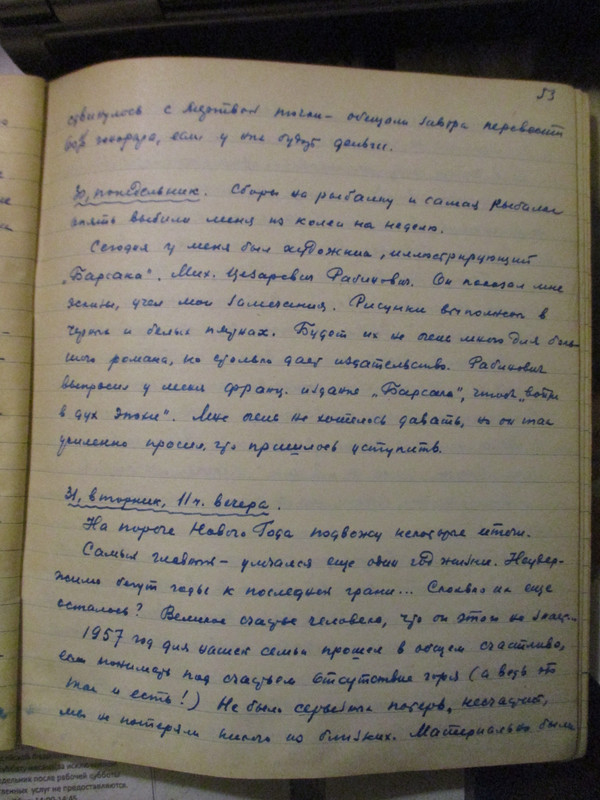 53
сдвинулось с мертвой точки - обещали завтра перевести
60% гонорара, если у них будут деньги.
30, понедельник. Сборы на рыбалку и самая рыбалка
опять выбили меня из колеи на неделю.
Сегодня у меня был художник, иллюстрирующий
„Барсака". Мих. Цезаревич Рабинович. Он показал мне
эскизы, учел мои замечания. Рисунки выполнены в
черных и белых пятнах. Будет их не очень много для боль-
шого романа, но столько дает издательство. Рабинович
выпросил у меня франц. издание „Барсака", чтобы „войти
в дух эпохи". Мне очень не хотелось давать, но он так
усиленно просил, что пришлось уступить.
31, вторник, 11 ч. вечера.
На пороге Нового Года подвожу некоторые итоги.
Самый главный - умчался еще один год жизни. Неудер-
жимо бегут годы к последней грани... Сколько их еще
осталось? Великое счастье человека, что он этого не знает.
1957 год для нашей семьи прошел в общем счастливо,
если понимать под счастьем отсутствие горя (а ведь это
так и есть!) Не было серьезных потерь, несчастий,
мы не потеряли никого из близких. Материально были